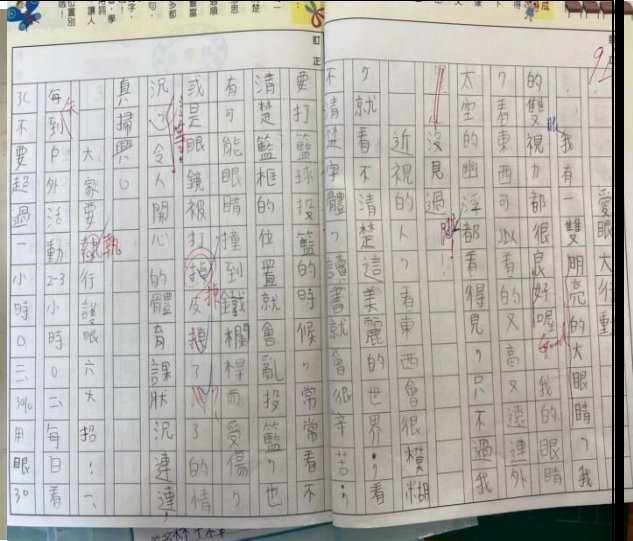 愛眼大行動
我有一雙明亮的大眼睛,我
的雙視力都很良好喔!我的眼睛
,看東西可以看的又高又遠連外
太空的幽浮都看得見,只不過我
沒見過!
近視的人,看東西會很模糊
,就看不清楚這美麗的世界,看
不清楚字體,讀書就會很辛苦,
要打籃球投籃的時候,常常看不
清楚籃框的位置就會亂投籃,也
有可能眼睛撞到鐵欄桿而受傷,
或是眼鏡被打掉
了的情
況,令人開心的體育課狀況連連,
真掃興。
大家要執行護眼六大招:一、
每到戶外活動2-3小時。二、每日看
3C不要超過一小時。三、3010用眼30